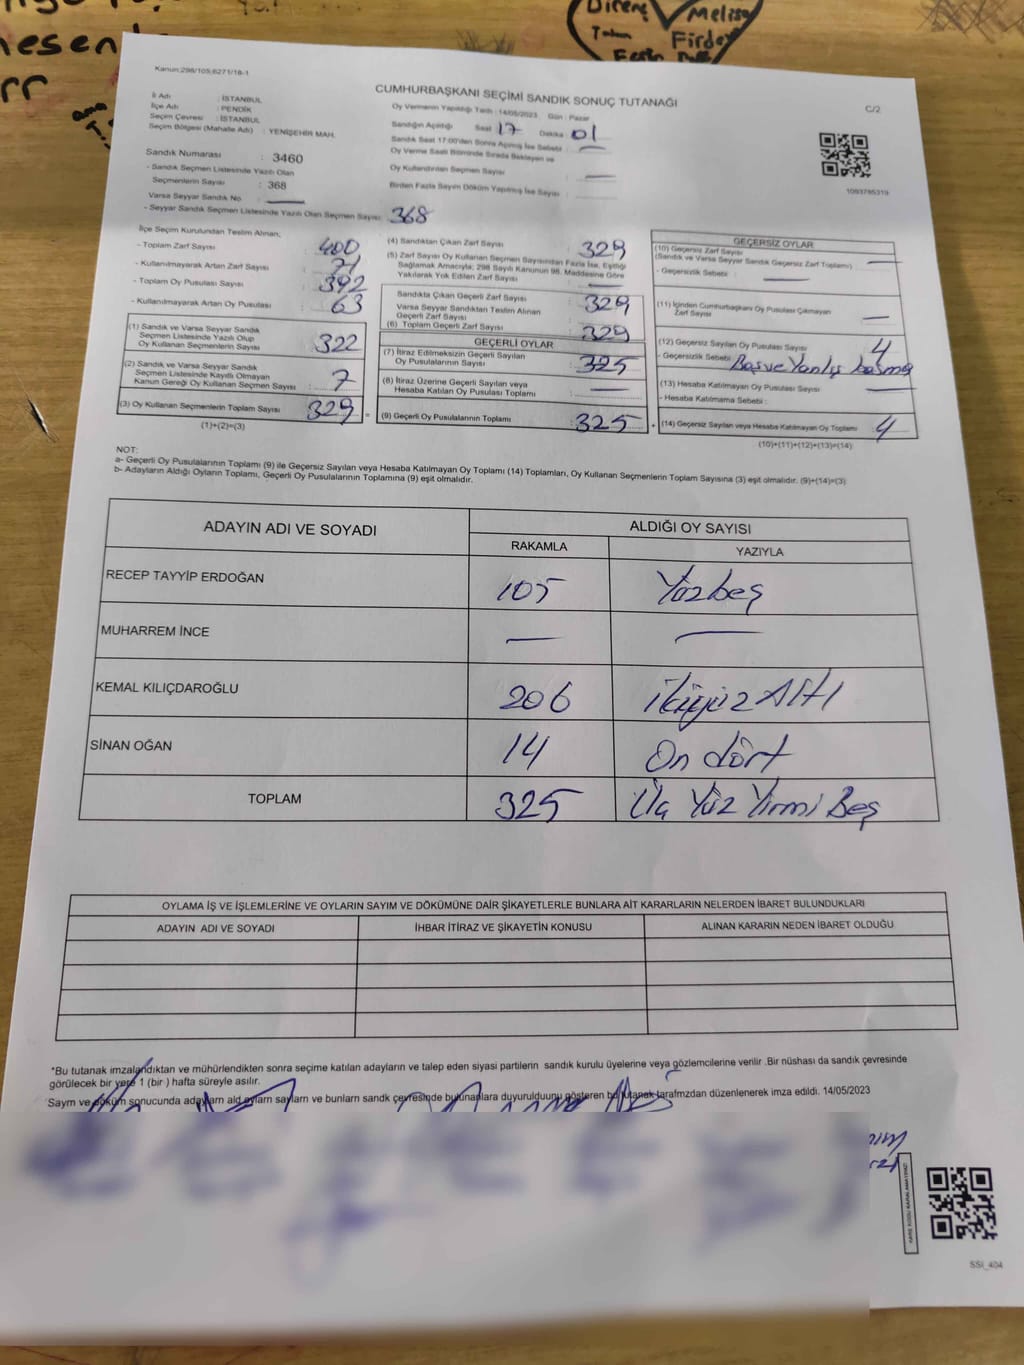 Direnç Melisa
Firdev
esen
rr
Kanun:298/105;6271/18-1
CUMHURBAŞKANI SEÇİMİ SANDIK SONUÇ TUTANAĞI
C/2
İl Adı : İSTANBUL
İlçe Adı : PENDİK
Seçim Çevresi : İSTANBUL
Seçim Bölgesi (Mahalle Adı) : YENİŞEHİR MAH.
Oy Vermenin Yapıldığı Tarih : 14/05/2023 Gün : Pazar
Sandığın Açıldığı Saat 17 Dakika 01
Sandık Saat 17:00'den Sonra Açılmış İse Sebebi : —
Oy Verme Saati Bitiminde Sırada Bekleyen ve
Oy Kullandırılan Seçmen Sayısı : —
Birden Fazla Sayım Döküm Yapılmış İse Sayısı :
1093785319
Sandık Numarası : 3460
- Sandık Seçmen Listesinde Yazılı Olan
Seçmenlerin Sayısı : 368
Varsa Seyyar Sandık No : —
- Seyyar Sandık Seçmen Listesinde Yazılı Olan Seçmen Sayısı : 368
İlçe Seçim Kurulundan Teslim Alınan;
- Toplam Zarf Sayısı : 400
- Kullanılmayarak Artan Zarf Sayısı : 71
- Toplam Oy Pusulası Sayısı : 392
- Kullanılmayarak Artan Oy Pusulası : 63
(1) Sandık ve Varsa Seyyar Sandık
Seçmen Listesinde Yazılı Olup
Oy Kullanan Seçmenlerin Sayısı : 322
(2) Sandık ve Varsa Seyyar Sandık
Seçmen Listesinde Kayıtlı Olmayan
Kanun Gereği Oy Kullanan Seçmen Sayısı : 7
(3) Oy Kullanan Seçmenlerin Toplam Sayısı : 329 =
(1)+(2)=(3)
(4) Sandıktan Çıkan Zarf Sayısı : 329
(5) Zarf Sayısı Oy Kullanan Seçmen Sayısından Fazla İse, Eşitliği
Sağlamak Amacıyla; 298 Sayılı Kanunun 98. Maddesine Göre
Yakılarak Yok Edilen Zarf Sayısı : —
Sandıkta Çıkan Geçerli Zarf Sayısı : 329
Varsa Seyyar Sandıktan Teslim Alınan
Geçerli Zarf Sayısı
(6) Toplam Geçerli Zarf Sayısı : 329
GEÇERLİ OYLAR
(7) İtiraz Edilmeksizin Geçerli Sayılan
Oy Pusulalarının Sayısı : 325
(8) İtiraz Üzerine Geçerli Sayılan veya
Hesaba Katılan Oy Pusulası Toplamı : —
(9) Geçerli Oy Pusulalarının Toplamı : 325 +
GEÇERSİZ OYLAR
(10) Geçersiz Zarf Sayısı
(Sandık ve Varsa Seyyar Sandık Geçersiz Zarf Toplamı) : —
- Geçersizlik Sebebi : —
(11) İçinden Cumhurbaşkanı Oy Pusulası Çıkmayan
Zarf Sayısı : —
(12) Geçersiz Sayılan Oy Pusulası Sayısı : 4
- Geçersizlik Sebebi : Boş ve Yanlış basma
(13) Hesaba Katılmayan Oy Pusulası Sayısı : —
- Hesaba Katılmama Sebebi :
(14) Geçersiz Sayılan veya Hesaba Katılmayan Oy Toplamı : 4
(10)+(11)+(12)+(13)=(14)
NOT:
a- Geçerli Oy Pusulalarının Toplamı (9) ile Geçersiz Sayılan veya Hesaba Katılmayan Oy Toplamı (14) Toplamları, Oy Kullanan Seçmenlerin Toplam Sayısına (3) eşit olmalıdır. (9)+(14)=(3)
b- Adayların Aldığı Oyların Toplamı, Geçerli Oy Pusulalarının Toplamına (9) eşit olmalıdır.
ADAYIN ADI VE SOYADI ALDIĞI OY SAYISI
RAKAMLA YAZIYLA
RECEP TAYYİP ERDOĞAN 105 Yüzbeş
MUHARREM İNCE — —
KEMAL KILIÇDAROĞLU 206 ikiyüz Altı
SİNAN OĞAN 14 On dört
TOPLAM 325 Üç Yüz Yirmi Beş
OYLAMA İŞ VE İŞLEMLERİNE VE OYLARIN SAYIM VE DÖKÜMÜNE DAİR ŞİKAYETLERLE BUNLARA AİT KARARLARIN NELERDEN İBARET BULUNDUKLARI
ADAYIN ADI VE SOYADI İHBAR İTİRAZ VE ŞİKAYETİN KONUSU ALINAN KARARIN NEDEN İBARET OLDUĞU
*Bu tutanak imzalandıktan ve mühürlendikten sonra seçime katılan adayların ve talep eden siyasi partilerin sandık kurulu üyelerine veya gözlemcilerine verilir .Bir nüshası da sandık çevresinde
görülecek bir yere 1 (bir ) hafta süreyle asılır.
Sayım ve döküm sonucunda adayların ald eyların sayların ve bunların sandk çevresinde bulunanlara duyurulduunu gösteren bu tutanak tarafmzdan düzenlenerek imza edildi. 14/05/2023
SSI_404